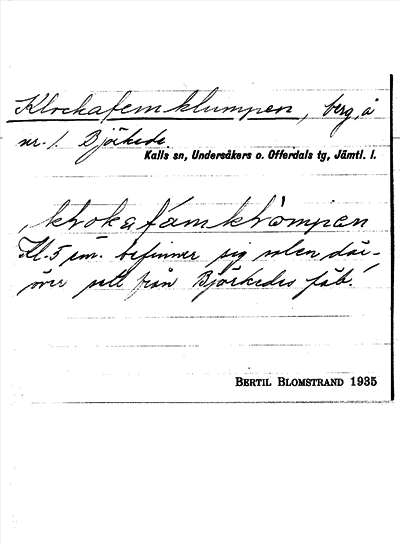 Klockafemklumpen, berg, å
nr. 1 Björkede
Kalls sn, Undersåkers o. Offerdals tg, Jämtl. l.
Kl. 5 em. befinner sig solen där-
över sett från Björkedes fäb.
BERTIL BLOMSTRAND 1935